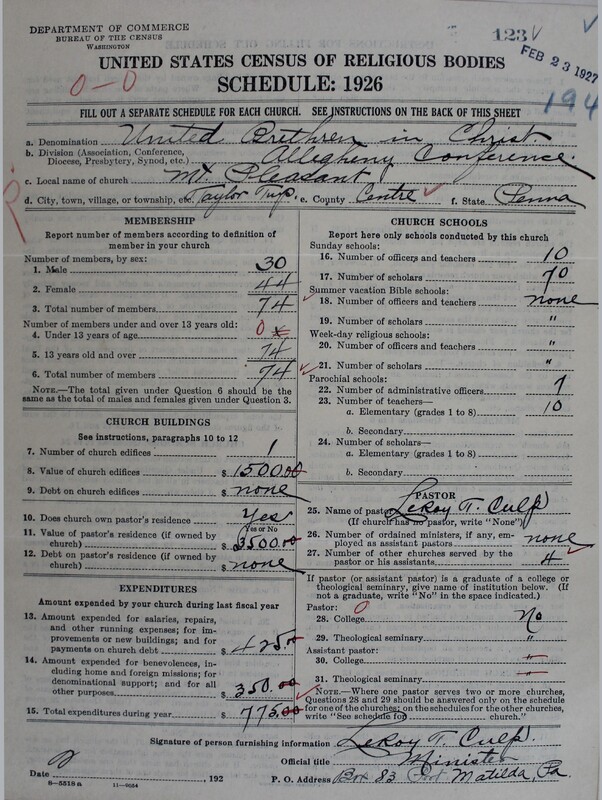 DEPARTMENT OF COMMERCE
BUREAU OF THE CENSUS
WASHINGTON
123
FEB 23 1927
194
UNITED STATES CENSUS OF RELIGIOUS BODIES
SCHEDULE: 1926
0-0
FILL OUT A SEPARATE SCHEDULE FOR EACH CHURCH. SEE INSTRUCTIONS ON THE BACK OF THIS SHEET
a. Denomination United Brethren in Christ.
b. Division (Association, Conference, Diocese, Presbytery, Synod, etc.) Allegheny Conference.
c. Local name of church Mt. Pleasant
d. City, town, village, or township, etc. Taylor Twp. e. County Centre f. State Penna
MEMBERSHIP
Report number of members according to definition of member in your church
Number of members, by sex:
1. Male 30
2. Female 44
3. Total number of members 74
Number of members under and over 13 years old:
4. Under 13 years of age 0
5. 13 years old and over 74
6. Total number of members 74
NOTE.—The total given under Question 6 should be the same as the total of males and females given under Question 3.
CHURCH BUILDINGS
See instructions, paragraphs 10 to 12
7. Number of church edifices 1
8. Value of church edifices $ 1500.00
9. Debt on church edifices $ none
10. Does church own pastor's residence Yes
Yes or No
11. Value of pastor's residence (if owned by church) $ 3500.00
12. Debt on pastor's residence (if owned by church) $ none
EXPENDITURES
Amount expended by your church during last fiscal year
13. Amount expended for salaries, repairs, and other running expenses; for improvements or new buildings; and for payments on church debt $ 425.00
14. Amount expended for benevolences, including home and foreign missions; for denominational support; and for all other purposes $ 350.00
15. Total expenditures during year $ 775.00
CHURCH SCHOOLS
Report here only schools conducted by this church
Sunday schools:
16. Number of officers and teachers 10
17. Number of scholars 70
Summer vacation Bible schools:
18. Number of officers and teachers none
19. Number of scholars "
Week-day religious schools:
20. Number of officers and teachers "
21. Number of scholars "
Parochial schools:
22. Number of administrative officers
23. Number of teachers—
a. Elementary (grades 1 to 8) 10
b. Secondary
24. Number of scholars—
a. Elementary (grades 1 to 8)
b. Secondary
PASTOR
25. Name of pastor LeRoy T. Culp
(If church has no pastor, write "None")
26. Number of ordained ministers, if any, employed as assistant pastors none
27. Number of other churches served by the pastor or his assistants 4
If pastor (or assistant pastor) is a graduate of a college or theological seminary, give name of institution below. (If not a graduate, write "No" in the space indicated.)
Pastor: 0
28. College No
29. Theological seminary "
Assistant pastor:
30. College "
31. Theological seminary "
NOTE.—Where one pastor serves two or more churches, Questions 28 and 29 should be answered only on the schedule for one of the churches; on the schedules for the other churches, write "See schedule for church."
Signature of person furnishing information LeRoy T. Culp.
Official title Minister
Date , 192
P. O. Address Box 83 Port Matilda, Pa.
8-5518a 11-9054